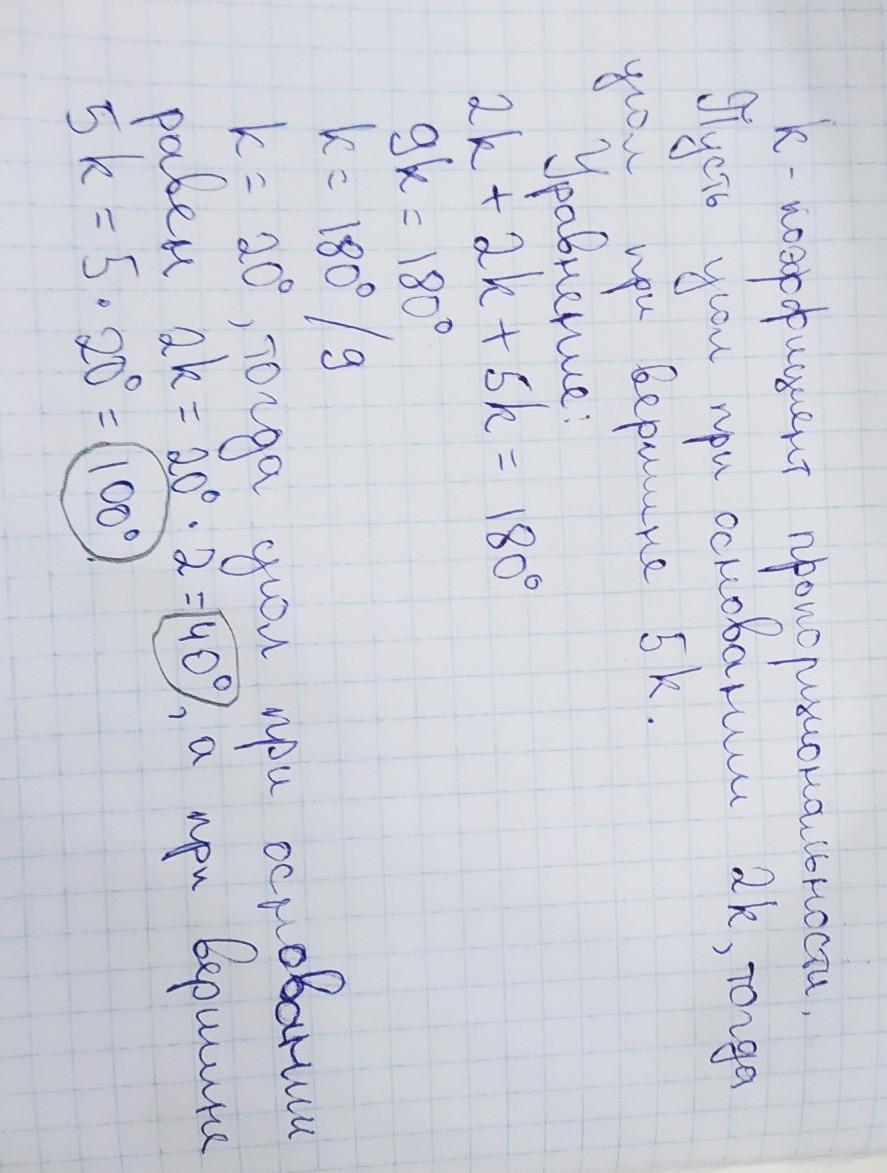 k - коэффициент пропорциональности.
Пусть угол при основании 2k, тогда
угол при вершине 5k.
Уравнение:
2k + 2k + 5k = 180°
9k = 180°
k = 180° / 9
k = 20°, тогда угол при основании
равен 2k = 20° · 2 = 40°, а при вершине
5k = 5 · 20° = 100°